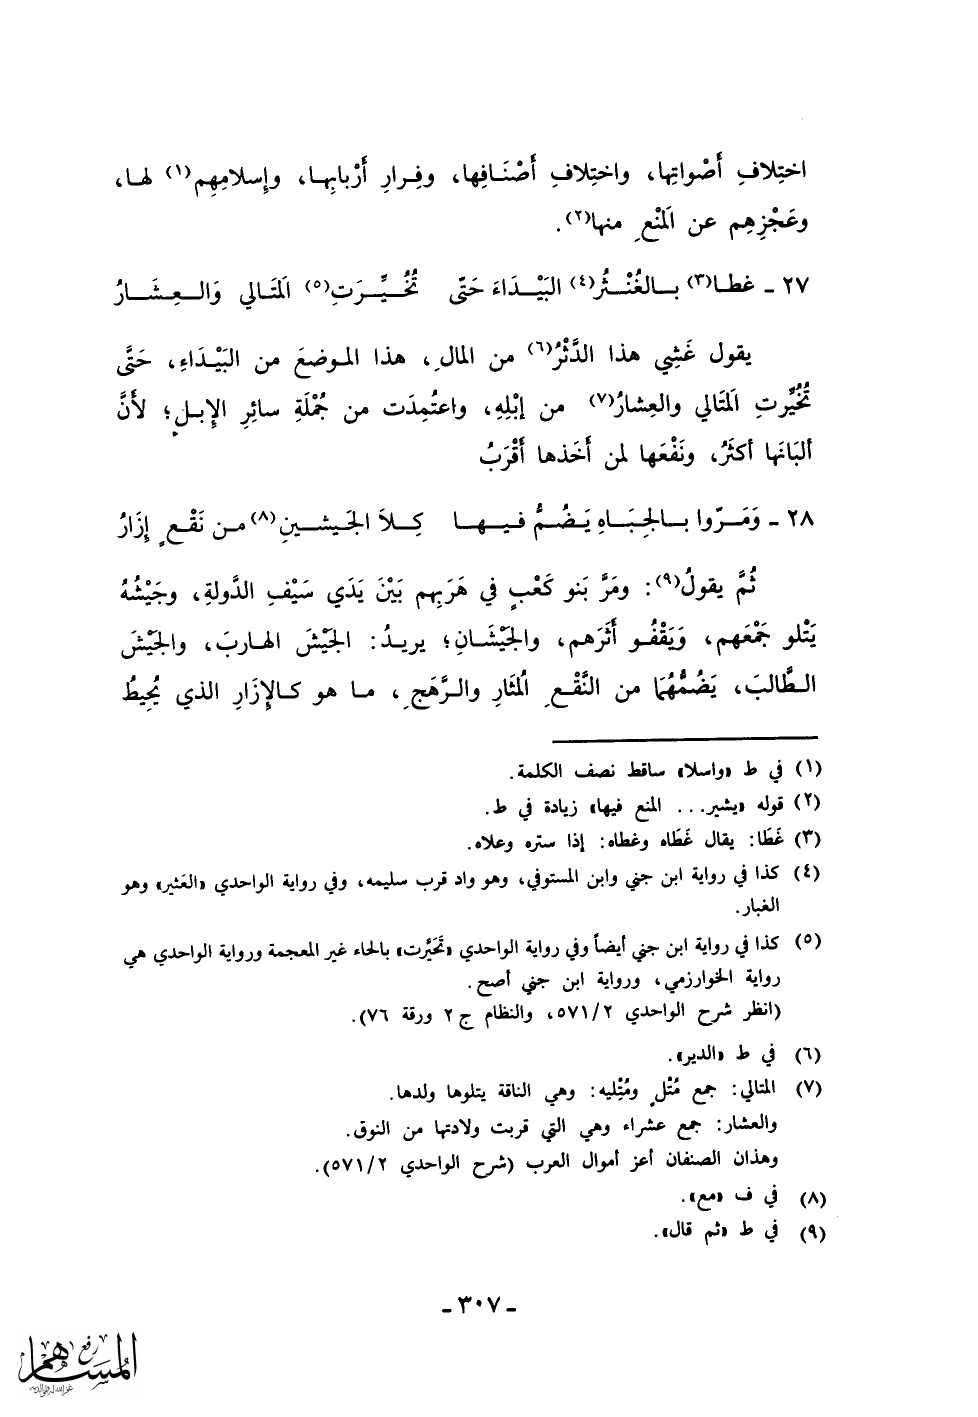 اختِلافِ أَصْواتِها، واختِلافِ أَصْنَافِها، وفِرارِ أَرْبابِها، وإِسلامِهِم(١) لها،
وعَجْزِهِم عن المَنْعِ منها(٢).
٢٧ ـ غطا(٣) بالغُنْثُرِ(٤) البَيْدَاءَ حَتّى تُخُيِّرَتِ(٥) المَتَالي وَالعِشَارُ
يقول غَشِي هذا الدَّثْرُ(٦) من المالِ، هذا الموضعَ من البَيْدَاءِ، حَتَّى
تُخُيِّرتِ المَتَالي والعِشارُ(٧) من إبْلِهِ، واعتُمِدَت من جُمْلَةِ سائِرِ الإِبلِ؛ لأَنَّ
ألبَانَها أكثَرُ، ونَفْعَها لمن أَخَذها أَقْرَبُ
٢٨ ـ وَمَرّوا بالجِبَاهِ يَضُمُّ فيها كِلاَ الجَيشينِ(٨) من نَقْعٍ إِزَارُ
ثُمَّ يقولُ(٩): ومَرَّ بَنو كَعْبٍ في هَرَبِهم بَيْنَ يَدَي سَيْفِ الدَّولةِ، وجَيْشُهُ
يَتْلو جَمْعَهم، وَيَقْفُو أَثَرَهم، والجَيْشَانِ؛ يريدُ: الجَيْشَ الهاربَ، والجَيْشَ
الطَّالبَ، يَضُمُّهُمَا من النَّقْعِ المُثَارِ والرَّهَجِ، ما هو كالإِزَارِ الذي يُحِيطُ
(١) في ط «واسلا» ساقط نصف الكلمة.
(٢) قوله «يشير... المنع فيها» زيادة في ط.
(٣) غَطَا: يقال غَطَاه وغطاه: إذا ستره وعلاه.
(٤) كذا في رواية ابن جني وابن المستوفي، وهو واد قرب سليمه، وفي رواية الواحدي «العَثير» وهو
الغبار.
(٥) كذا في رواية ابن جني أيضاً وفي رواية الواحدي «تَحَيَّرت» بالحاء غير المعجمة ورواية الواحدي هي
رواية الخوارزمي، ورواية ابن جني أصح.
(انظر شرح الواحدي ٥٧١/٢، والنظام ج ٢ ورقة ٧٦).
(٦) في ط «الدير».
(٧) المتالي: جمع مُتْلٍ ومُتْلِيه: وهي الناقة يتلوها ولدها.
والعشار: جمع عشراء وهي التي قربت ولادتها من النوق.
وهذان الصنفان أعز أموال العرب (شرح الواحدي ٥٧١/٢).
(٨) في ف «مع».
(٩) في ط «ثم قال».
ـ ٣٠٧ ـ
رفع
المساهم